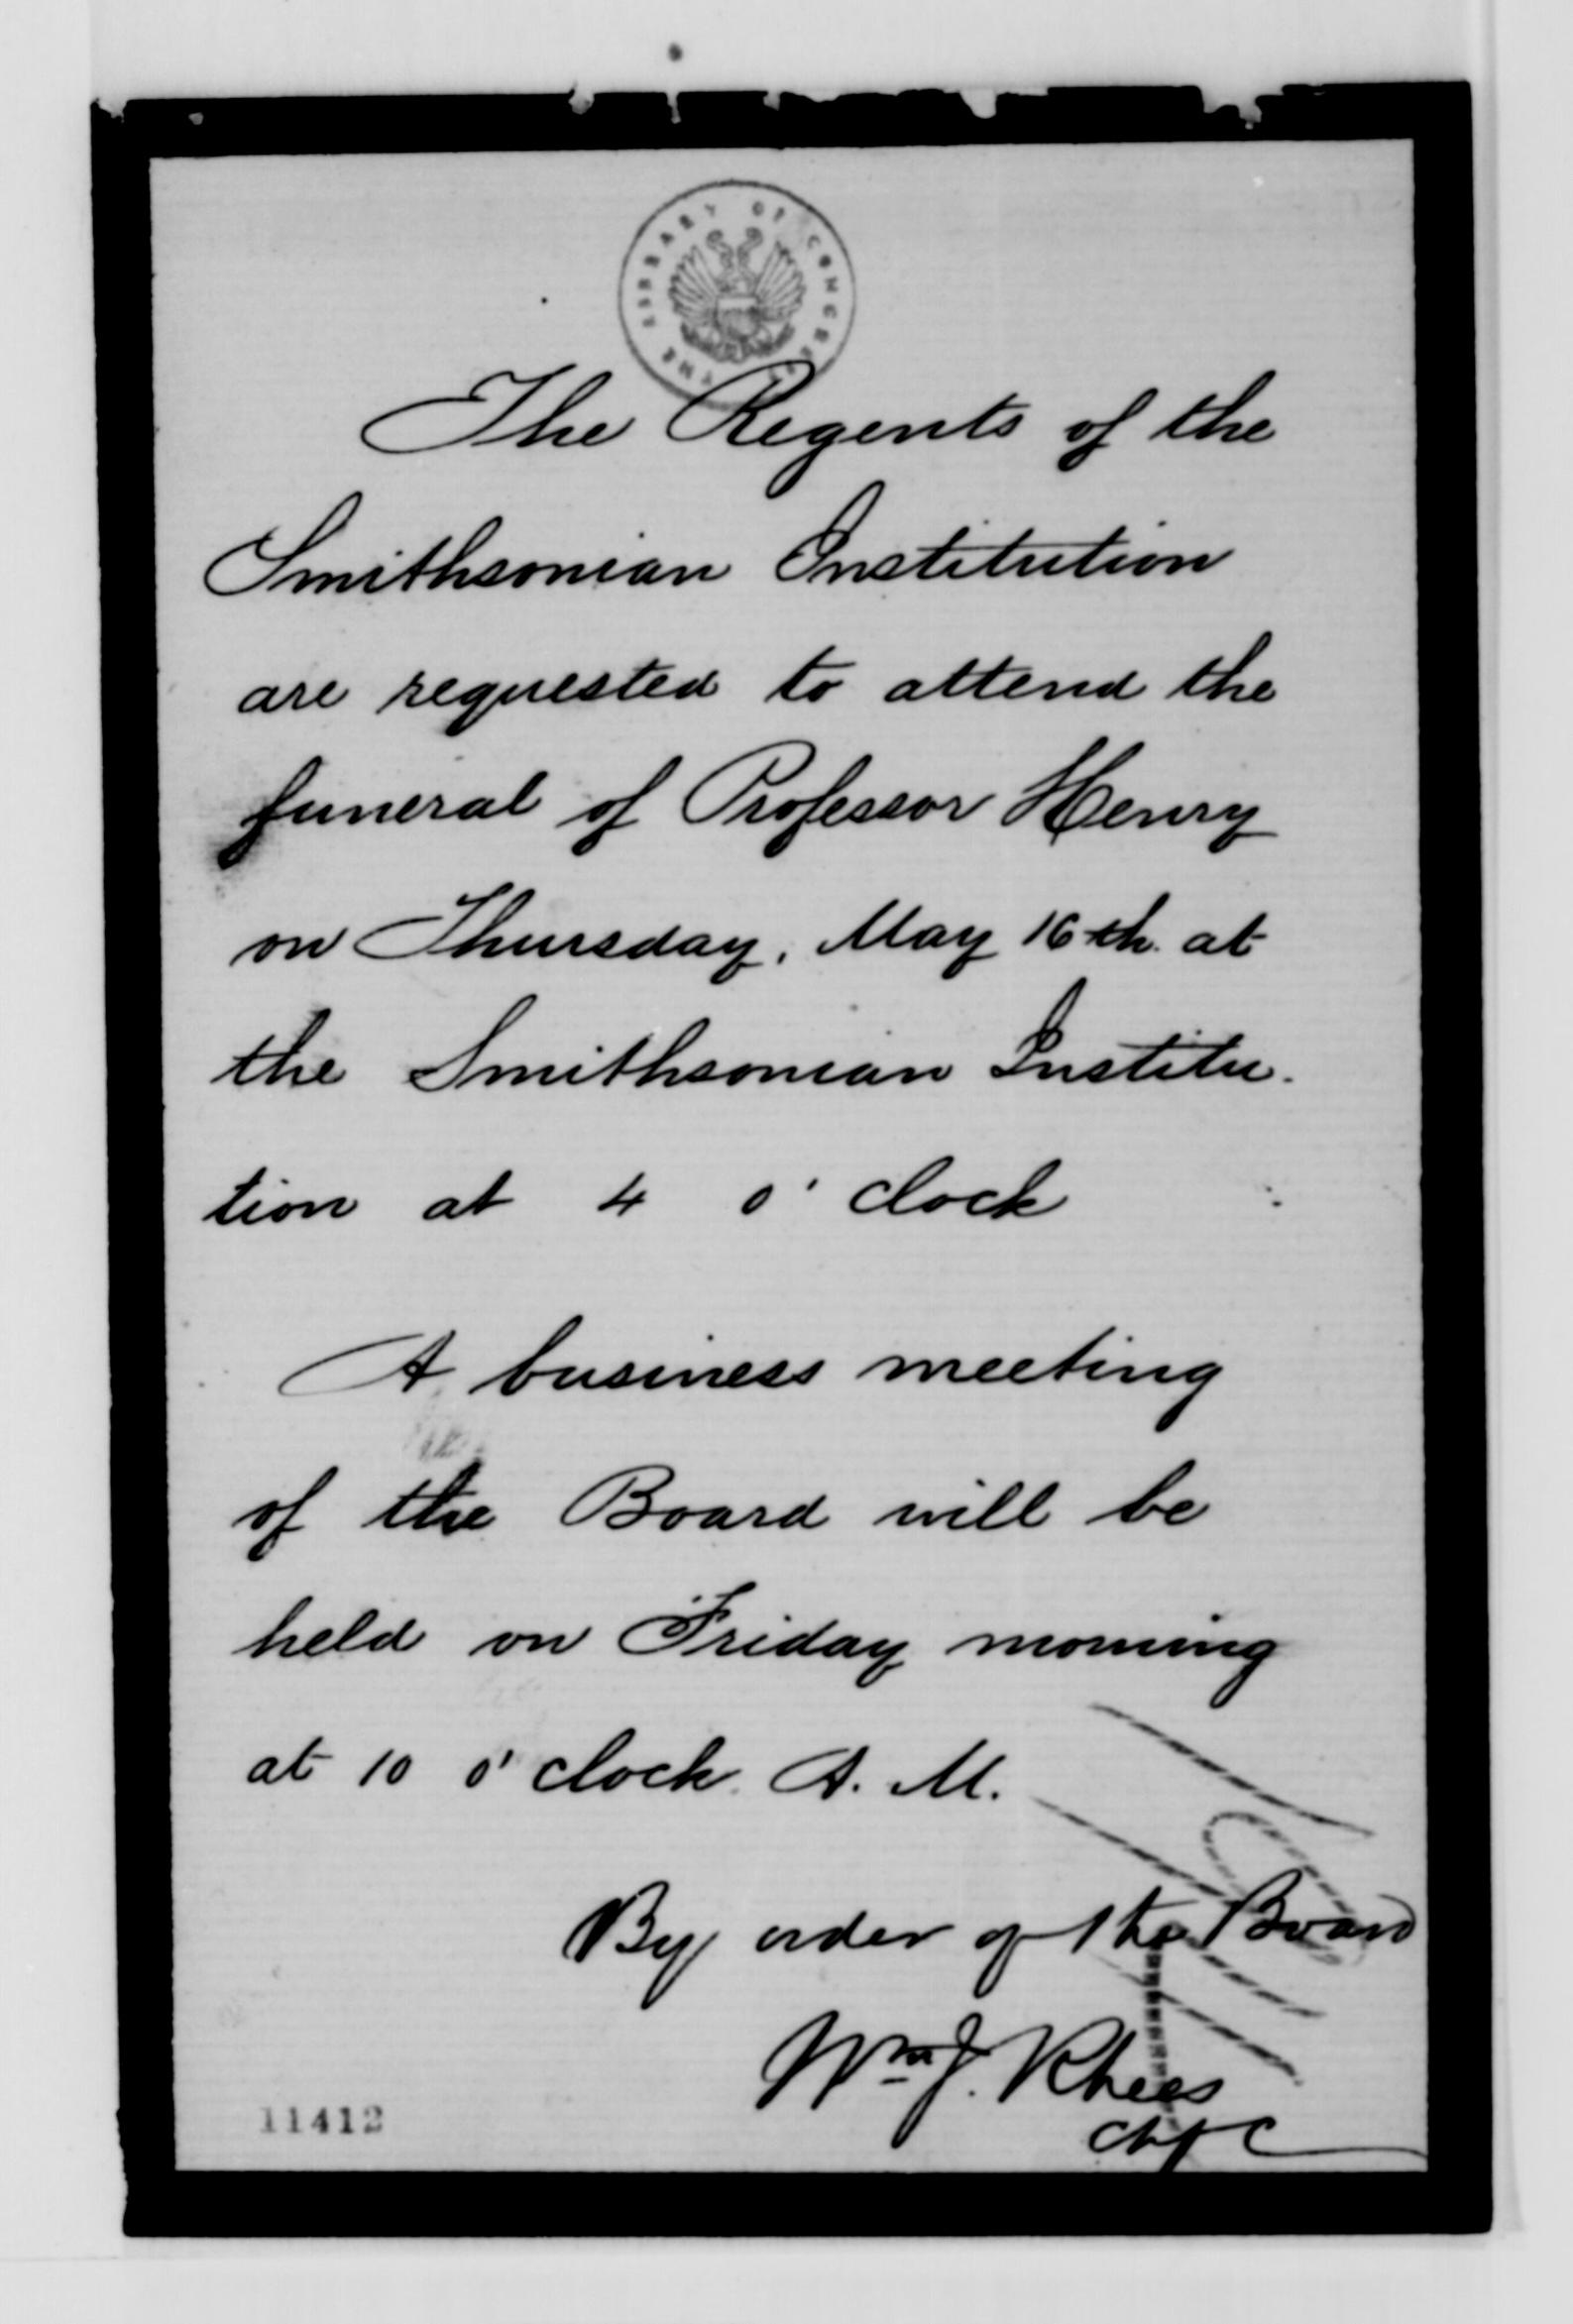 THE LIBRARY OF CONGRESS
The Regents of the
Smithsonian Institution
are requested to attend the
funeral of Professor Henry
on Thursday, May 16th. at
the Smithsonian Institu-
tion at 4 o'clock
A business meeting
of the Board will be
held on Friday morning
at 10 o'clock. A. M.
By order of the Board
Wm J. Rhees
Chf C
11412